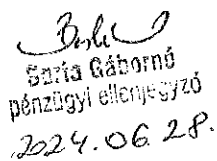 Barta Gáborné
pénzügyi ellenjegyző
2024.06.28.